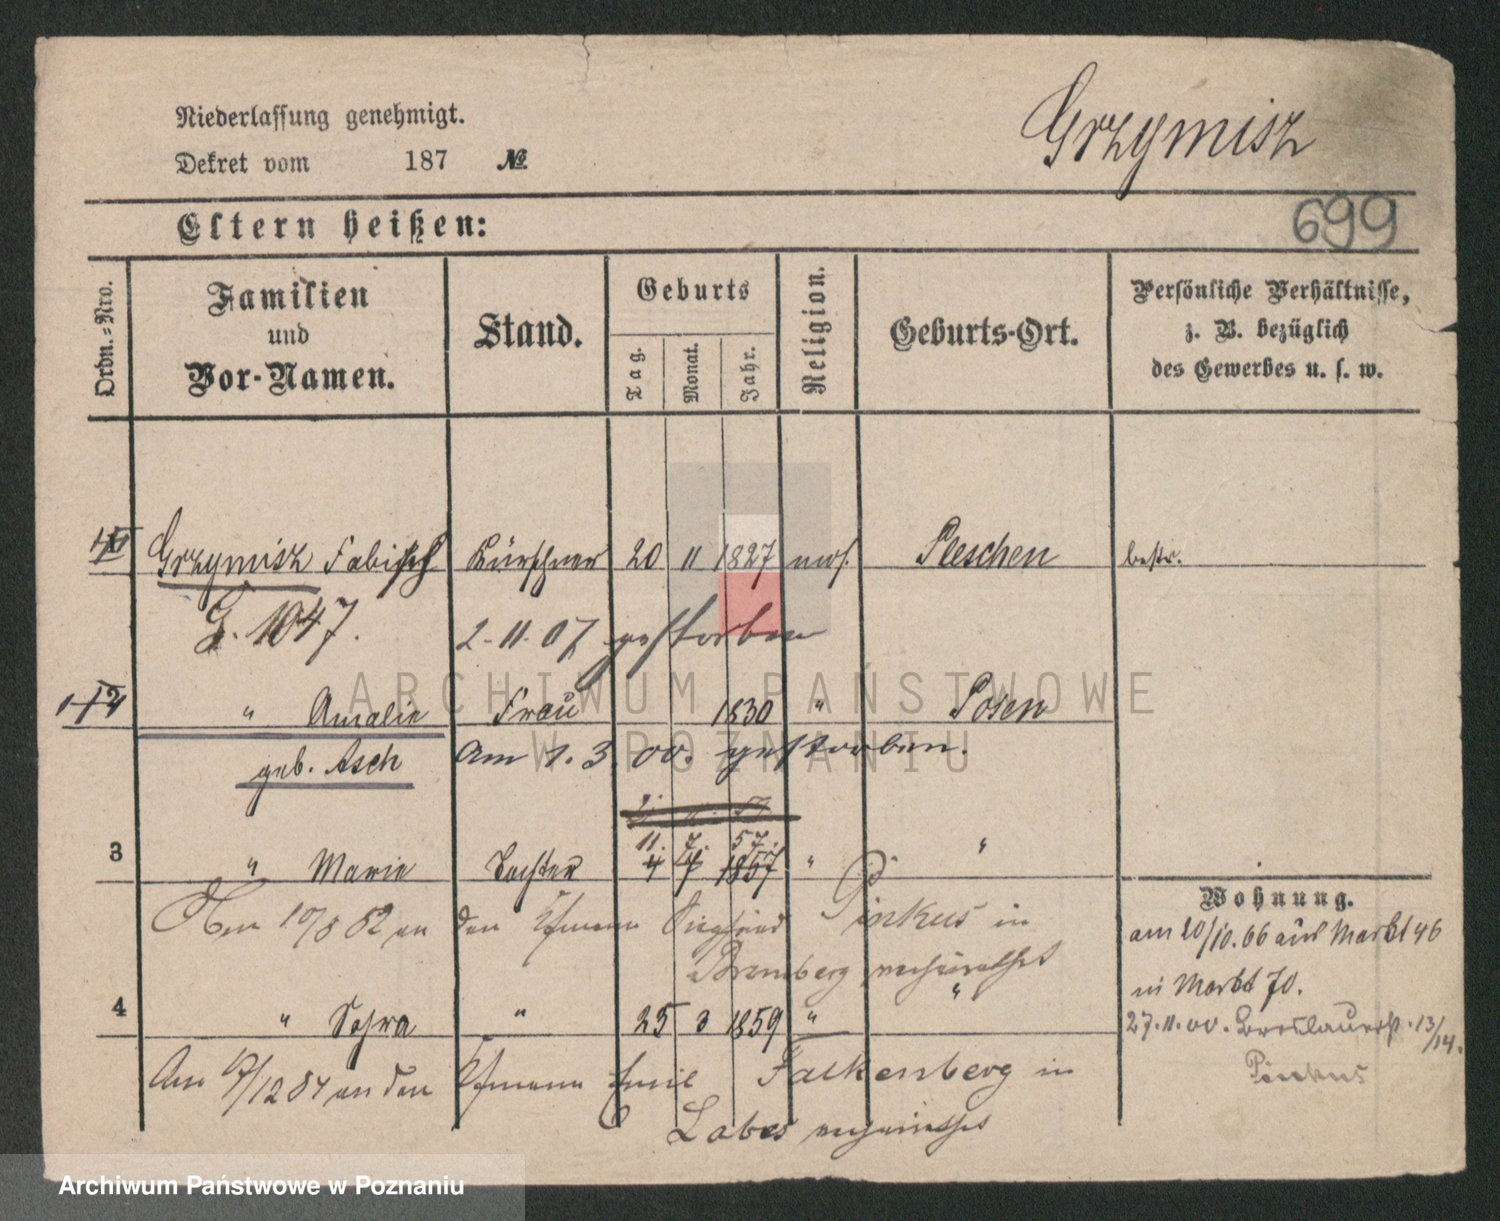 Niederlassung genehmigt.
Dekret vom 187 №
Grzymisz
699
Eltern heißen:
Ordn.-Nro.
Familien und Vor-Namen.
Stand.
Geburts
Tag.
Monat.
Jahr.
Religion.
Geburts-Ort.
Persönliche Verhältnisse,
z. B. bezüglich
des Gewerbes u. s. w.
Grzymisz Fabisch Kürschner 20 11 1827 mos. Pleschen
G. 1047. 2.11.07 gestorben
" Amalie Frau 1830 " Posen
geb. Asch am 1.3.00. gestorben.
11. 7. 57.
3 " Marie Tochter 4 4 1857 " "
Wohnung.
den 10/8 82 an den Kfmann Siegfried Pinkus in
Bromberg verheirathet
am 20/10.66 aus Markt 46
in Markt 70.
4 " Sahra " 25 3 1859 " "
27.11.00. Breslauerst. 13/14.
Pinkus
Am /12 84 an den Kfmann Emil Falkenberg in
Labes verheirathet
ARCHIWUM PAŃSTWOWE
W POZNANIU
Archiwum Państwowe w Poznaniu